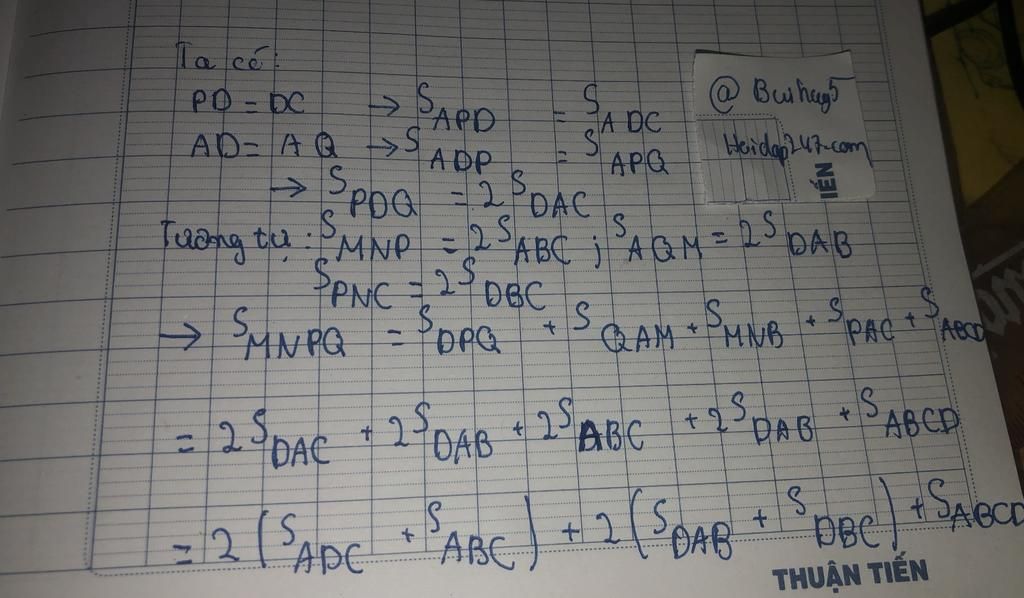 Ta có:
PD = DC → S APD = S ADC
AD = AQ → S ADP = S APQ
→ S PDQ = 2 S DAC
Tương tự: S MNP = 2 S ABC ; S AQM = 2 S DAB
S PNC = 2 S DBC
→ S MNPQ = S DPQ + S QAM + S MNB + S PAC + S ABCD
= 2 S DAC + 2 S DAB + 2 S ABC + 2 S DAB + S ABCD
= 2 ( S ADC + S ABC ) + 2 ( S DAB + S DBC ) + S ABCD
@
Hoidap247.com
IẾN
THUẬN TIẾN